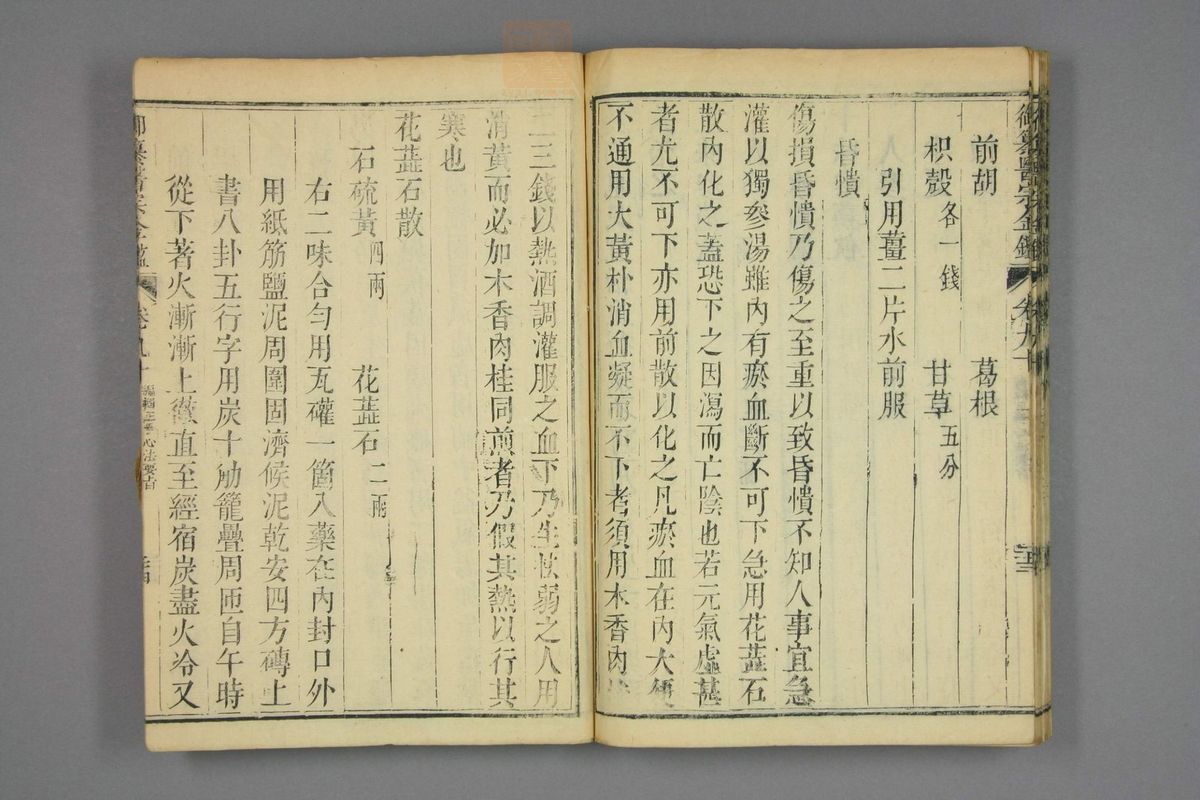 御纂醫宗金鑑 卷九十
前胡 葛根
枳殻各一錢 甘草五分
引用薑二片水前服
昏憒
傷損昏憒乃傷之至重以致昏憒不知人事宜急
灌以獨參湯雖內有瘀血斷不可下急用花蕋石
散內化之蓋恐下之因瀉而亡陰也若元氣虛甚
者尤不可下亦用前散以化之凡瘀血在內大便
不通用大黃朴消血凝而不下者須用木香肉
二三錢以熱酒調灌服之血下乃生怯弱之人用
消黃而必加木香肉桂同煎者乃假其熱以行其
寒也
花蕋石散
石硫黃四兩 花蕋石二兩
右二味合勻用瓦礶一箇入藥在內封口外
用紙筋鹽泥周圍固濟候泥乾安四方磚上
書八卦五行字用炭十觔籠疊周匝自午時
從下著火漸漸上徹直至經宿炭盡火冷又
御纂醫宗金鑑 卷九十 心法要旨